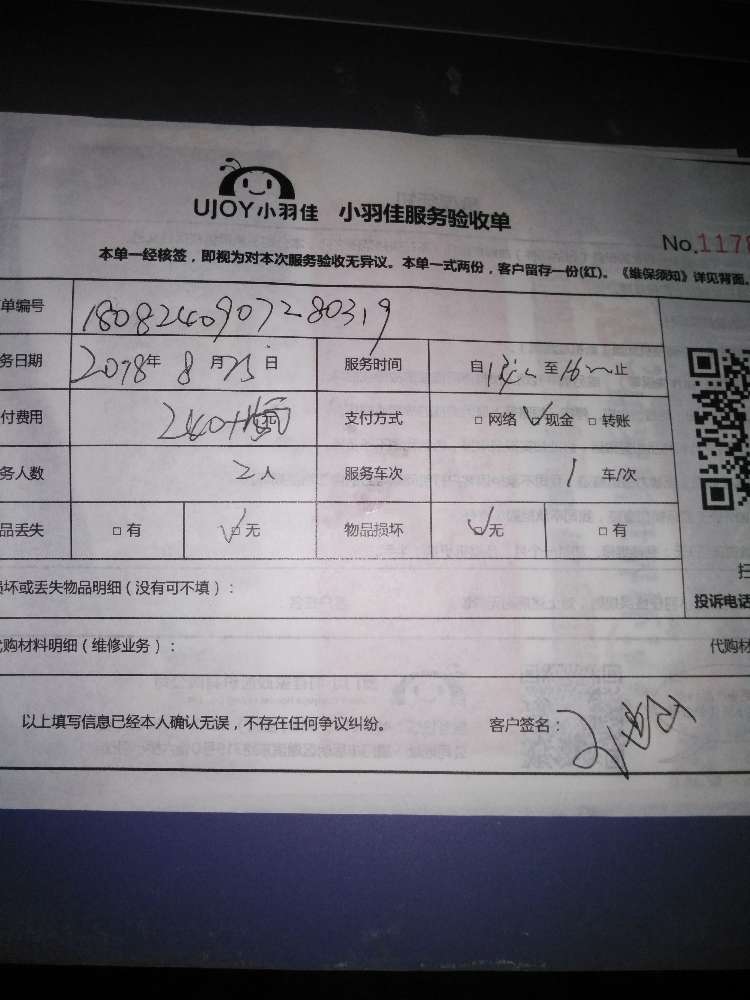 UJOY小羽佳 小羽佳服务验收单
No.1178
本单一经核签，即视为对本次服务验收无异议。本单一式两份，客户留存一份(红)。《维保须知》详见背面。
单编号 1808240907280319
务日期 2018年 8月25日 服务时间 自 至16 止
付费用 240+ 支付方式 □网络 ☑现金 □转账
务人数 2人 服务车次 1车/次
品丢失 □有 ☑无 物品损坏 ☑无 □有
损坏或丢失物品明细（没有可不填）：
投诉电话
代购材料明细（维修业务）： 代购材
以上填写信息已经本人确认无误，不存在任何争议纠纷。 客户签名：